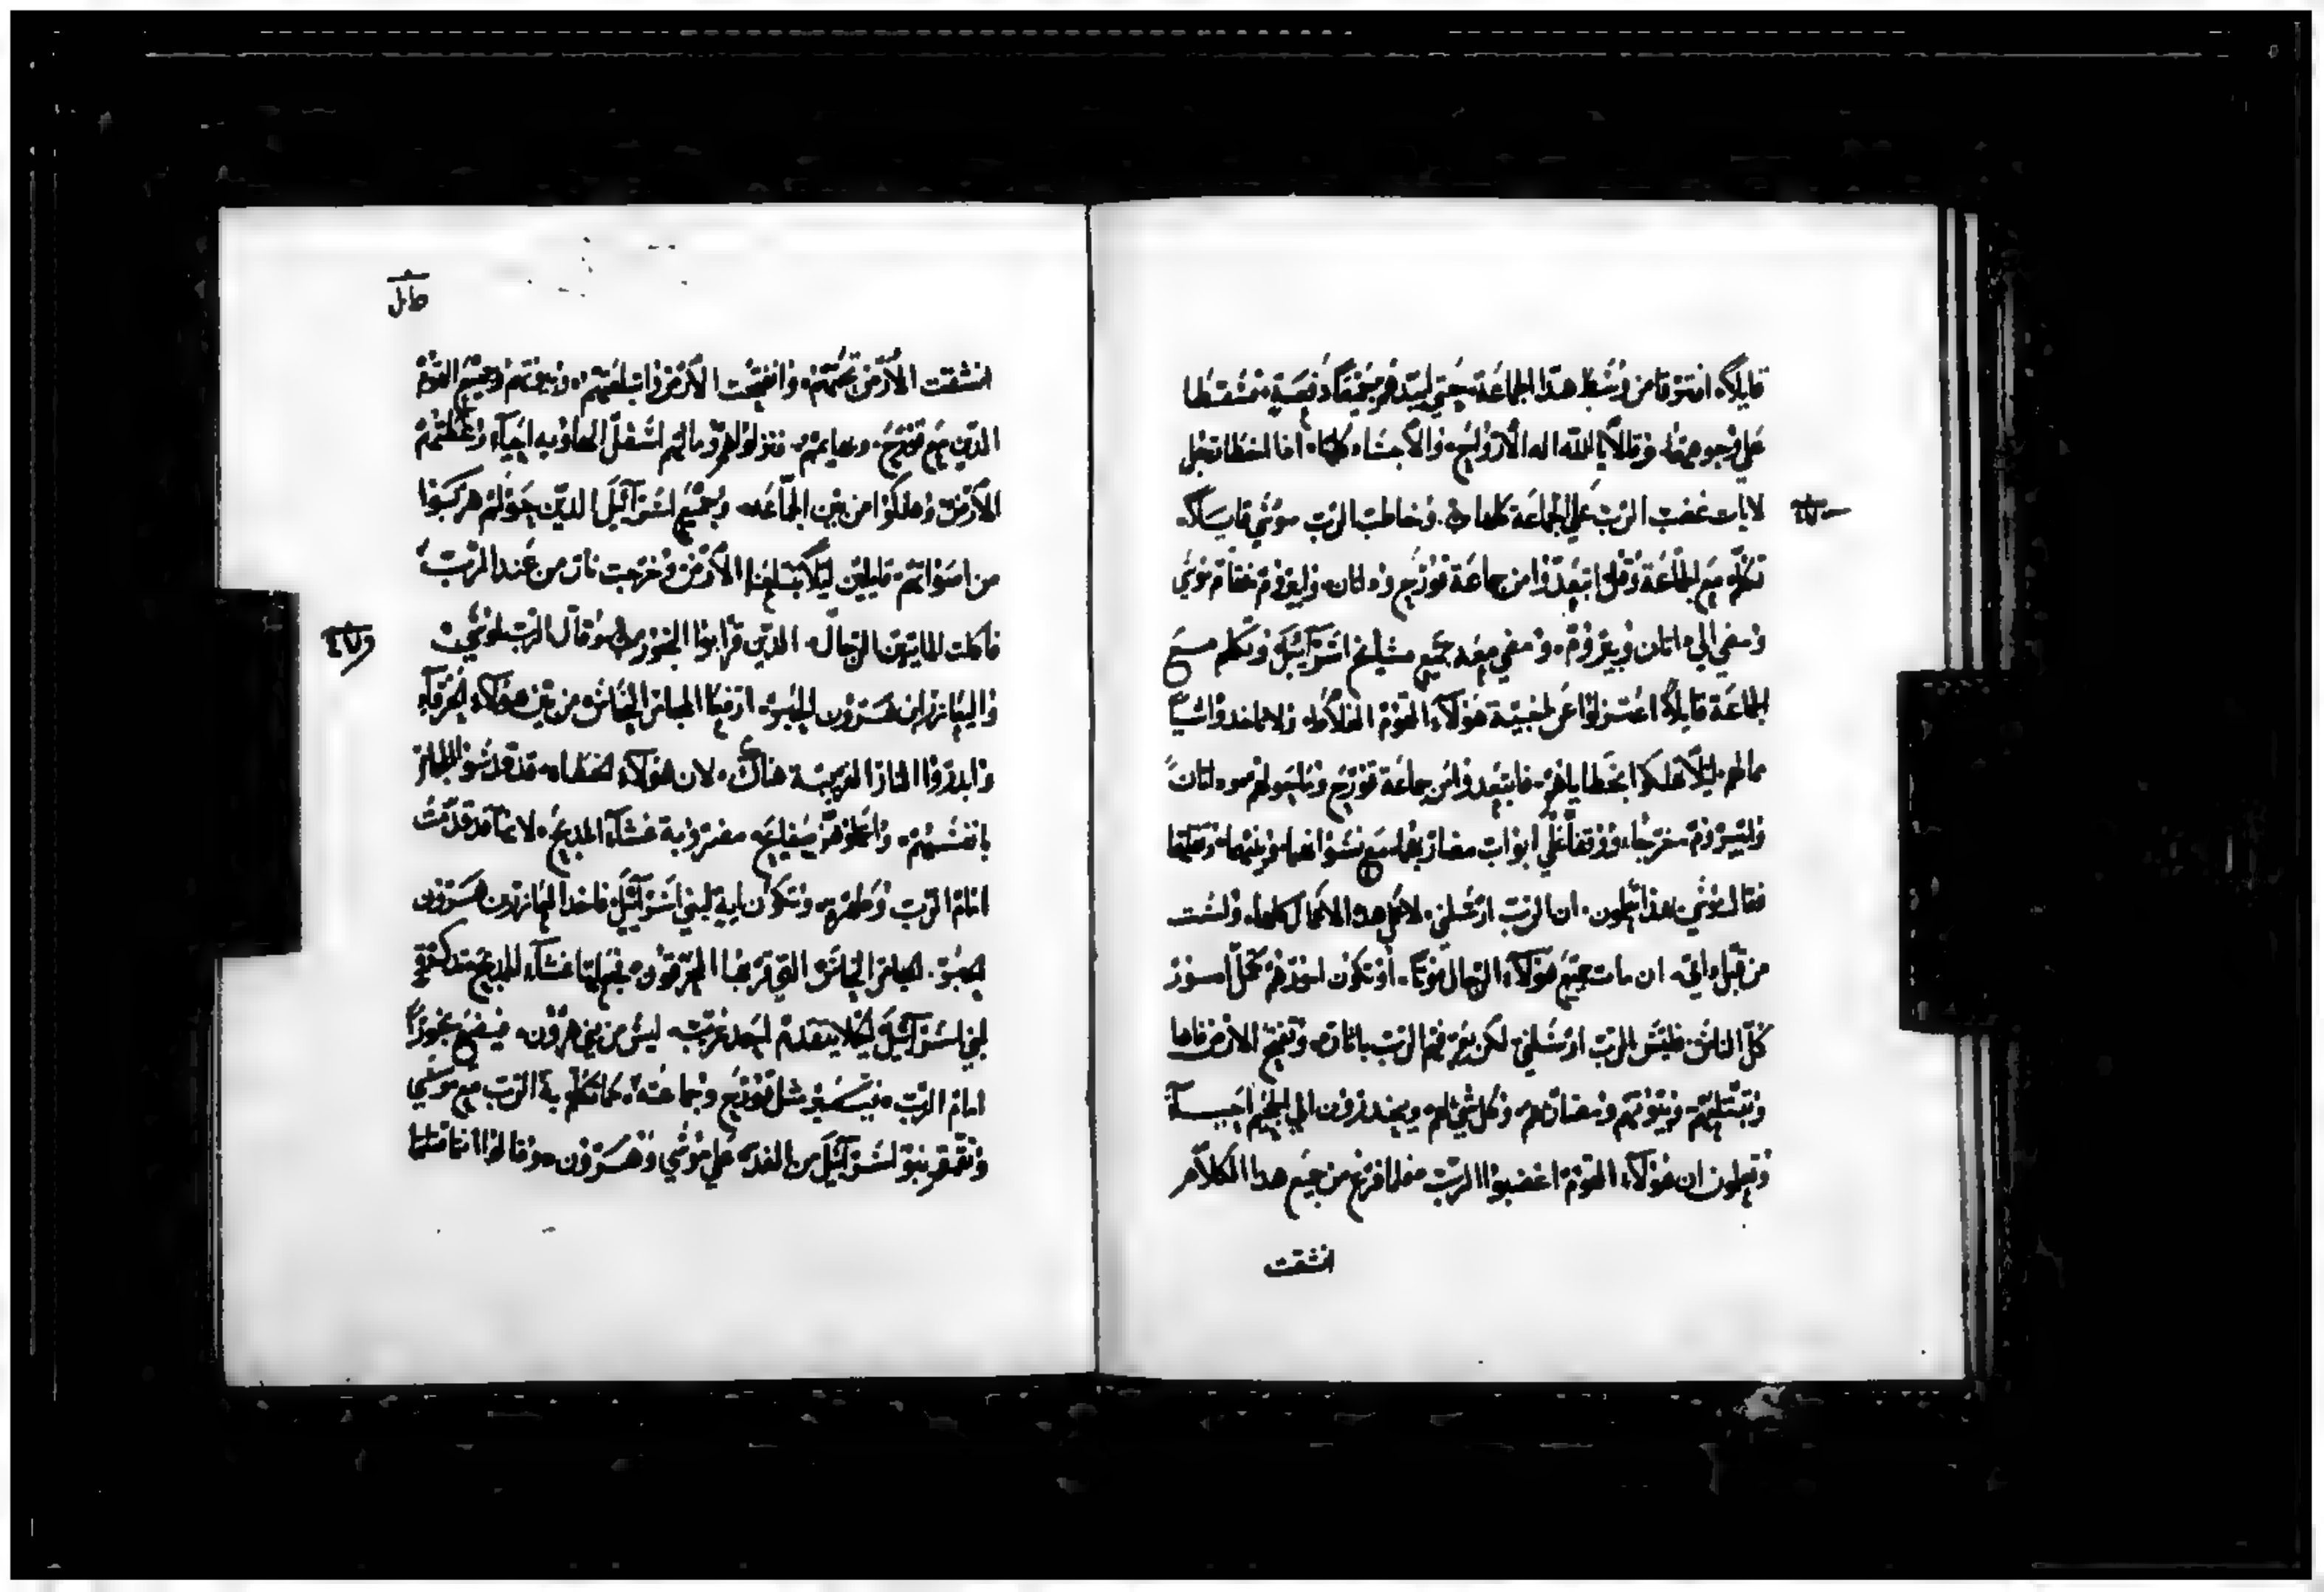 قايلاً افترقا من وسط هذا الجماعة حتي ليبدهم جميعاً دفعة فسقطا
علي وجوههما وقالا يا الله اله الارواح والاجساد كلها اذا اخطا رجل
لايات غضب الرب علي الجماعة كلها وخاطب الرب موسي قايلاً
تكلم مع الجماعة وقل ابتعدوا من جماعة قورح
ومضي الي اتان وبيروم ومضي معه جميع مشايخ اسراييل وتكلم مع
الجماعة قايلاً اعتزلوا عن اخبية هولاء القوم الغلاظ ولا تاخدوا شياً
مما لهم ليلا تهلكوا بخطاياهم فابتعدوا من جماعة قورح
وقفا علي ابواب مضاربهما مع نسوانهما وبنيهما وثقلهما
فقال موسي بهذا تعلمون ان الرب ارسلني لاعمل هذه الاعمال كلها وليست
من قبل داتي ان مات جميع هولاء الرجال موتاً او تكون امورهم كمثل امور
كل الناس فليس الرب ارسلني لكن يعرفهم الرب باياته وتفتح الارض فاها
وتبتلعهم وبيوتهم ومضاربهم وكل شي لهم وينحدرون الي الجحيم احيا
وتعلمون ان هولاء القوم اغضبوا الرب فلما فرغ من جميع هدا الكلام
انشقت
انشقت الارض تحتهم وانفتحت الارض وابتلعتهم وبيوتهم وجميع القوم
الدين مع قورح وبهايمهم فنزلوا هم وما لهم اسفل الهاويه احياء وغطتهم
الارض وهلكوا من بين الجماعه وجميع اسراييل الدين حولهم هربوا
من اصواتهم قايلين ليلا تبتلعنا الارض وخرجت نار من عند الرب
فاكلت المايتين الرجال الدين قربوا البخور وقال الرب لموسي
واليعازر ابن هرون الحبر ارفعا المجامر النحاس من بين هولاء المحرقين
وابدروا النار الغريبة هناك لان هولاء الخطاه قد قدسوا المجامر
بانفسهم واعملوهم صفايح مضروبة غشاء المدبح لانها قد قدمت
امام الرب وطهرت وتكون اية لبني اسراييل فاخد اليعازر بن هرون
الحبر المجامر النحاس التي قربها المحرقون فجعلها غشاء للمدبح تدكره
لبني اسراييل ليلا يتقدم احد غريب ليس من بني هرون فيضع بخوراً
امام الرب فيصير مثل قورح وجماعته كما تكلم به الرب مع موسي
وتقمقم بنو اسراييل من الغد علي موسي وهرون وقالوا انتما قتلتما